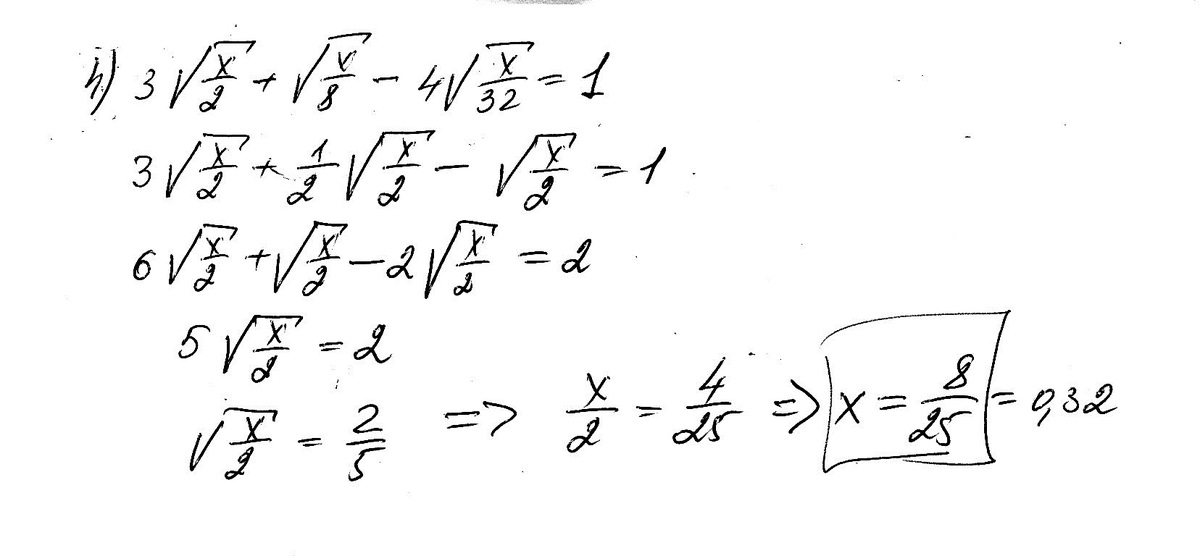 h) 3√(x/2) + √(x/8) − 4√(x/32) = 1
3√(x/2) + 1/2 √(x/2) − √(x/2) = 1
6√(x/2) + √(x/2) − 2√(x/2) = 2
5√(x/2) = 2
√(x/2) = 2/5 => x/2 = 4/25 => x = 8/25 = 0,32